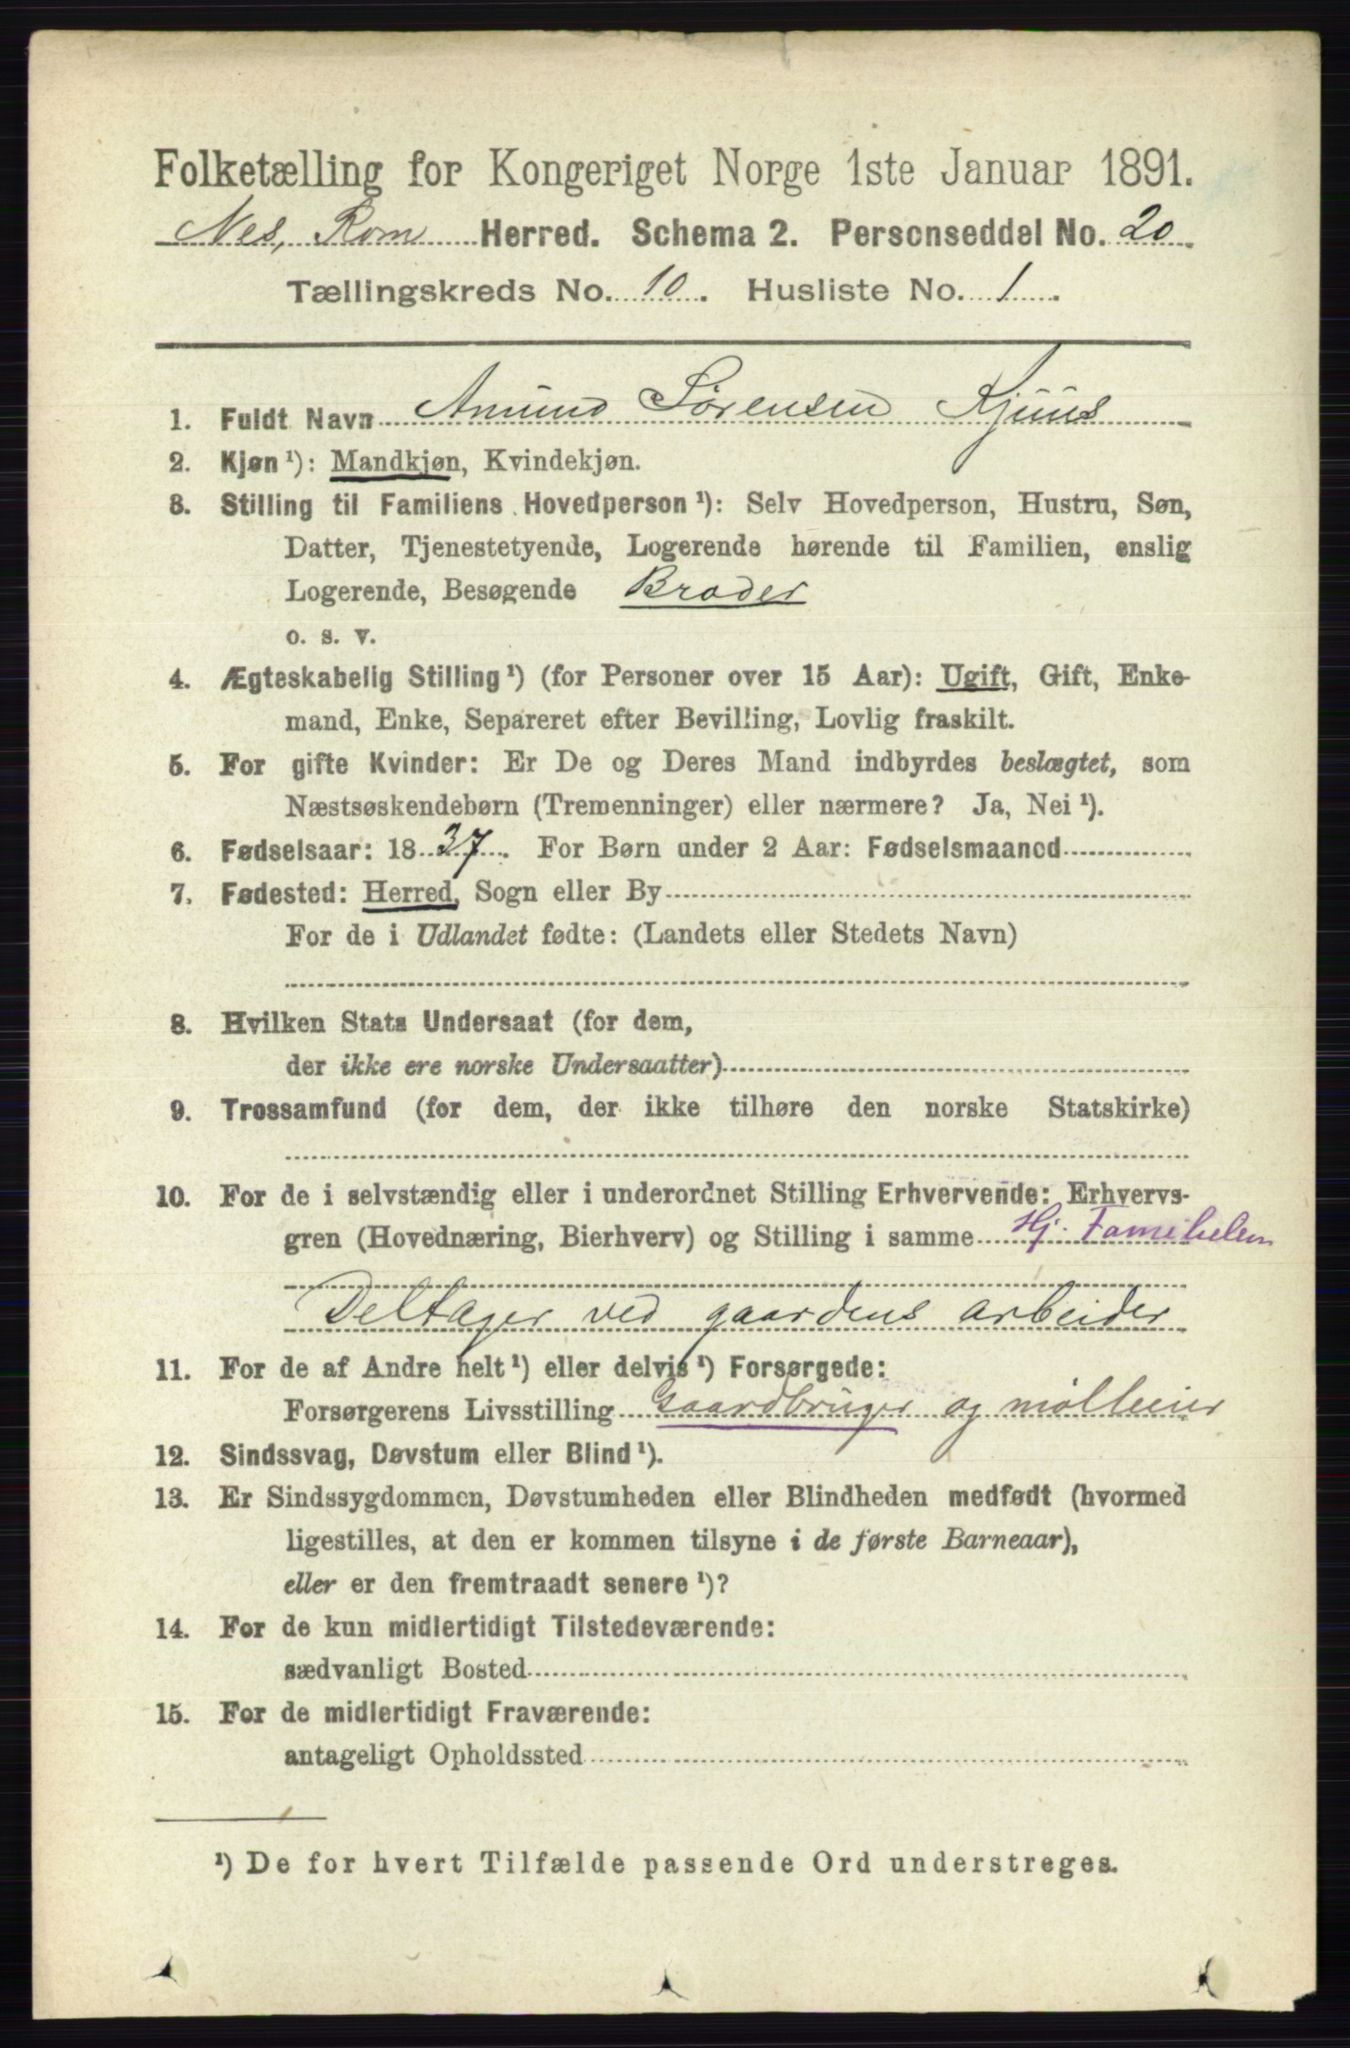 Folketælling for Kongeriget Norge 1ste Januar 1891.
Nes, Rom Herred. Schema 2. Personseddel No. 20
Tællingskreds No. 10. Husliste No. 1.
1. Fuldt Navn Amund Sørensen Kjuus
2. Kjøn ¹): Mandkjøn, Kvindekjøn.
3. Stilling til Familiens Hovedperson ¹): Selv Hovedperson, Hustru, Søn,
Datter, Tjenestetyende, Logerende hørende til Familien, enslig
Logerende, Besøgende Broder
o. s. v.
4. Ægteskabelig Stilling ¹) (for Personer over 15 Aar): Ugift, Gift, Enke-
mand, Enke, Separeret efter Bevilling, Lovlig fraskilt.
5. For gifte Kvinder: Er De og Deres Mand indbyrdes beslægtet, som
Næstsøskendebørn (Tremenninger) eller nærmere? Ja, Nei ¹).
6. Fødselsaar: 1837. For Børn under 2 Aar: Fødselsmaaned
7. Fødested: Herred, Sogn eller By
For de i Udlandet fødte: (Landets eller Stedets Navn)
8. Hvilken Stats Undersaat (for dem,
der ikke ere norske Undersaatter)
9. Trossamfund (for dem, der ikke tilhøre den norske Statskirke)
10. For de i selvstændig eller i underordnet Stilling Erhvervende: Erhvervs-
gren (Hovednæring, Bierhverv) og Stilling i samme Hj.
Deltager ved gaardens arbeider
11. For de af Andre helt ¹) eller delvis ¹) Forsørgede:
Forsørgerens Livsstilling Gaardbruger og mølleeier
12. Sindssvag, Døvstum eller Blind ¹).
13. Er Sindssygdommen, Døvstumheden eller Blindheden medfødt (hvormed
ligestilles, at den er kommen tilsyne i de første Barneaar),
eller er den fremtraadt senere ¹)?
14. For de kun midlertidigt Tilstedeværende:
sædvanligt Bosted
15. For de midlertidigt Fraværende:
antageligt Opholdssted
¹) De for hvert Tilfælde passende Ord understreges.